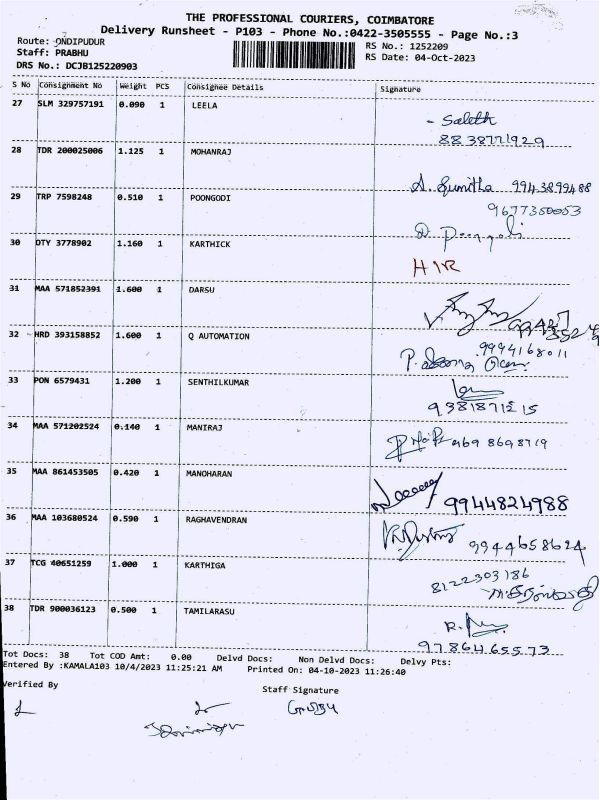 THE PROFESSIONAL COURIERS, COIMBATORE
Delivery Runsheet - P103 - Phone No.:0422-3505555 - Page No.:3
Route: ONDIPUDUR RS No.: 1252209
Staff: PRABHU RS Date: 04-Oct-2023
DRS No.: DCJB125220903
S No Consignment No Weight PCS Consignee Details Signature
27 SLM 329757191 0.090 1 LEELA
- Saleth
8838771929
28 TDR 200025006 1.125 1 MOHANRAJ
A. Sumitha 9943899488
29 TRP 7598248 0.510 1 POONGODI
9677350053
30 OTY 3778902 1.160 1 KARTHICK
HIR
31 MAA 571852391 1.600 1 DARSU
32 HRD 393158852 1.600 1 Q AUTOMATION
9994168011
33 PON 6579431 1.200 1 SENTHILKUMAR
34 MAA 571202524 0.140 1 MANIRAJ
35 MAA 861453505 0.420 1 MANOHARAN
9944824988
36 MAA 103680524 0.590 1 RAGHAVENDRAN
9944658624
37 TCG 40651259 1.000 1 KARTHIGA
8122303186
38 TDR 900036123 0.500 1 TAMILARASU
9786465573
Tot Docs: 38 Tot COD Amt: 0.00 Delvd Docs: Non Delvd Docs: Delvy Pts:
Entered By :KAMALA103 10/4/2023 11:25:21 AM Printed On: 04-10-2023 11:26:40
Verified By Staff Signature